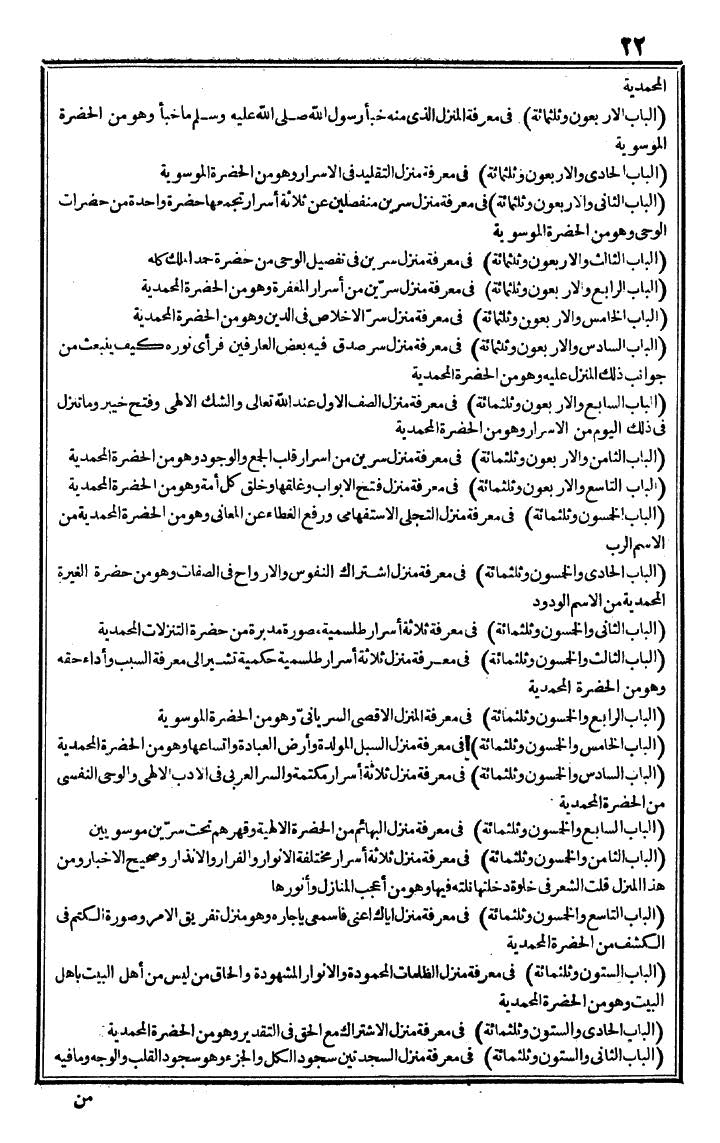 ٢٢
المحمدية
(الباب الاربعون وثلثمائة) فى معرفة المنزل الذى منه خبأ رسول الله صلى الله عليه وسلم ما خبأ وهو من الحضرة
الموسوية
(الباب الحادى والاربعون وثلثمائة) فى معرفة منزل التقليد فى الاسرار وهو من الحضرة الموسوية
(الباب الثانى والاربعون وثلثمائة) فى معرفة منزل سرين منفصلين عن ثلاثة أسرار تجمعها حضرة واحدة من حضرات
الوحى وهو من الحضرة الموسوية
(الباب الثالث والاربعون وثلثمائة) فى معرفة منزل سرين فى تفصيل الوحى من حضرة حمد الملك كله
(الباب الرابع والاربعون وثلثمائة) فى معرفة منزل سرّين من أسرار المغفرة وهو من الحضرة المحمدية
(الباب الخامس والاربعون وثلثمائة) فى معرفة منزل سرّ الاخلاص فى الدين وهو من الحضرة المحمدية
(الباب السادس والاربعون وثلثمائة) فى معرفة منزل سر صدق فيه بعض العارفين فرأى نوره كيف ينبعث من
جوانب ذلك المنزل عليه وهو من الحضرة المحمدية
(الباب السابع والاربعون وثلثمائة) فى معرفة منزل الصف الاول عند الله تعالى والشك الالهى وفتح خيبر وما تنزل
فى ذلك اليوم من الاسرار وهو من الحضرة المحمدية
(الباب الثامن والاربعون وثلثمائة) فى معرفة منزل سرين من اسرار قلب الجمع والوجود وهو من الحضرة المحمدية
(الباب التاسع والاربعون وثلثمائة) فى معرفة منزل فتح الابواب وغلقها وخلق كل أمة وهو من الحضرة المحمدية
(الباب الخمسون وثلثمائة) فى معرفة منزل التجلى الاستفهامى ورفع الغطاء عن المعانى وهو من الحضرة المحمدية من
الاسم الرب
(الباب الحادى والخمسون وثلثمائة) فى معرفة منزل اشتراك النفوس والارواح فى الصفات وهو من حضرة الغيرة
المحمدية من الاسم الودود
(الباب الثانى والخمسون وثلثمائة) فى معرفة ثلاثة أسرار طلسمية، صورة مدبرة من حضرة التنزلات المحمدية
(الباب الثالث والخمسون وثلثمائة) فى معرفة منزل ثلاثة أسرار طلسمية حكمية تشير الى معرفة السبب وأداء حقه
وهو من الحضرة المحمدية
(الباب الرابع والخمسون وثلثمائة) فى معرفة المنزل الاقصى السريانىّ وهو من الحضرة الموسوية
(الباب الخامس والخمسون وثلثمائة) فى معرفة منزل السبل المولدة وأرض العبادة واتساعها وهو من الحضرة المحمدية
(الباب السادس والخمسون وثلثمائة) فى معرفة منزل ثلاثة أسرار مكتمة والسر العربى فى الادب الالهى والوحى النفسى
من الحضرة المحمدية
(الباب السابع والخمسون وثلثمائة) فى معرفة منزل البهائم من الحضرة الالهية وقهرهم تحت سرّين موسويين
(الباب الثامن والخمسون وثلثمائة) فى معرفة منزل ثلاثة أسرار مختلفة الانوار والفرار والانذار وصحيح الاخبار ومن
هذا المنزل قلت الشعر فى خلوة دخلتها نلته فيها وهو من أعجب المنازل وأنورها
(الباب التاسع والخمسون وثلثمائة) فى معرفة منزل اياك اعنى فاسمعى ياجاره وهو منزل تفريق الامر وصورة الكتم فى
الكشف من الحضرة المحمدية
(الباب الستون وثلثمائة) فى معرفة منزل الظلمات المحمودة والانوار المشهودة والحاق من ليس من أهل البيت باهل
البيت وهو من الحضرة المحمدية
(الباب الحادى والستون وثلثمائة) فى معرفة منزل الاشتراك مع الحق فى التقدير وهو من الحضرة المحمدية
(الباب الثانى والستون وثلثمائة) فى معرفة منزل السجدتين سجود الكل والجزء وهو سجود القلب والوجه وما فيه
من